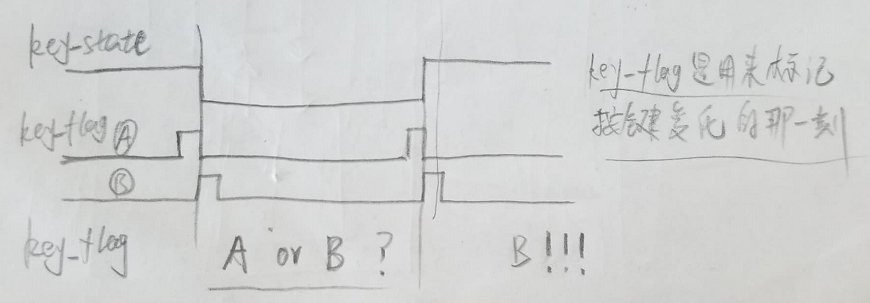 key-state
key-flag Ⓐ
Ⓑ
key-flag
A or B ?
B!!!
key-flag是用来标记
按键变化的那一刻